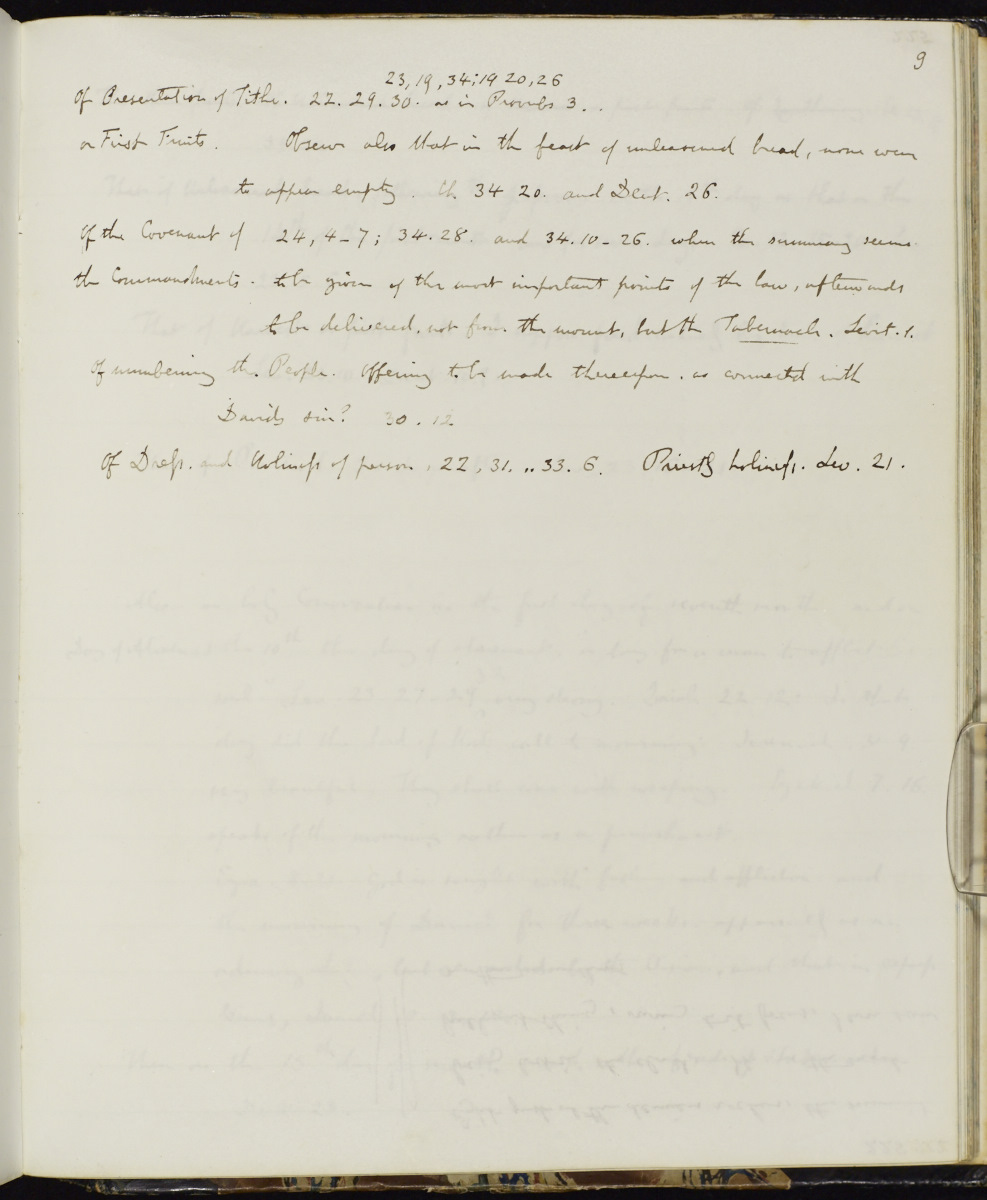 9
23, 19, 34; 19 20, 26
Of Presentation of Tithe. 22. 29. 30. as in Proverbs 3. .
or First Fruits. Observe also that in the feast of unleavened bread, none were
to appear empty. Ch 34 20. and Deut. 26.
Of the Covenant of 24, 4-7; 34. 28. and 34. 10-26. when the summary seems
the Commandments. to be given of the most important points of the law, afterwards
to be delivered, not from the mount, but the Tabernacle. Levit. 1.
Of numbering the People. Offering to be made thereupon. as connected with
Davids sin? 30. 12
Of Dress. and Holiness of person, 22, 31. .. 33. 6. Priestly holiness. Lev. 21.